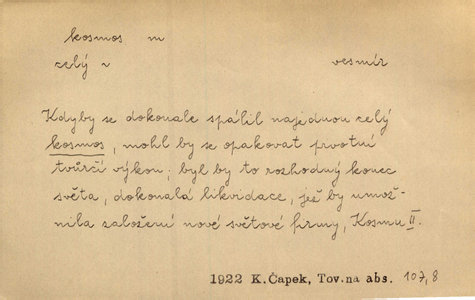 kosmos m
celý ~ vesmír
Kdyby se dokonale spálil najednou celý
kosmos, mohl by se opakovat prvotní
tvůrčí výkon; byl by to rozhodný konec
světa, dokonalá likvidace, jež by umož-
nila založení nové světové firmy, Kosmu II.
1922 K.Čapek, Tov.na abs. 107,8